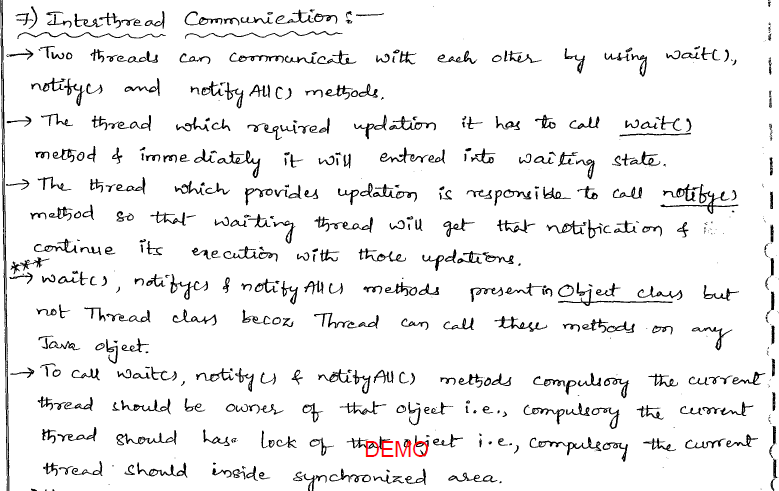 7) Interthread Communication :—
→ Two threads can communicate with each other by using wait(),
notify() and notifyAll() methods.
→ The thread which required updation it has to call wait()
method & immediately it will entered into waiting state.
→ The thread which provides updation is responsible to call notify()
method so that waiting thread will get that notification &
continue its execution with those updations.
***
→ wait(), notify() & notifyAll() methods present in Object class but
not Thread class becoz Thread can call these methods on any
Java object.
→ To call wait(), notify() & notifyAll() methods compulsory the current
thread should be owner of that object i.e., compulsory the current
thread should has lock of that object i.e., compulsory the current
DEMO
thread should inside synchronized area.